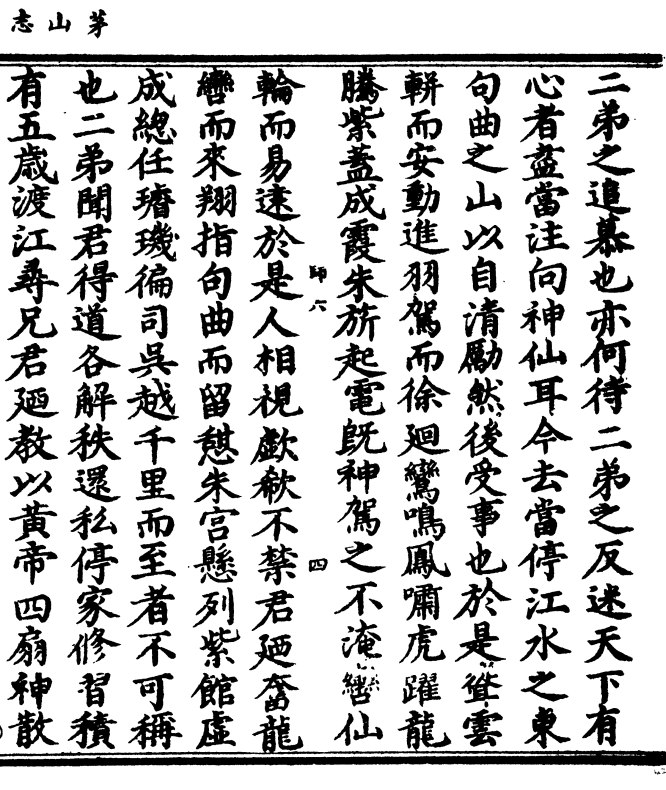 茅山志
二弟之追慕也亦何待二弟之反迷天下有
心者盍當注向神仙耳今去當停江水之東
句曲之山以自清勵然後受事也於是聳雲
軿而安動進羽駕而徐廻鸞鳴鳳嘯虎躍龍
騰紫蓋成霞朱旂起電既神駕之不淹轡仙
師六
四
輪而易遠於是人相視歔欷不禁君廼奮龍
轡而來翔指句曲而留憇朱宮懸列紫館虛
成總任璿璣徧司吳越千里而至者不可稱
也二弟聞君得道各解秩還私停家修習積
有五歲渡江尋兄君廼教以黃帝四扇神散